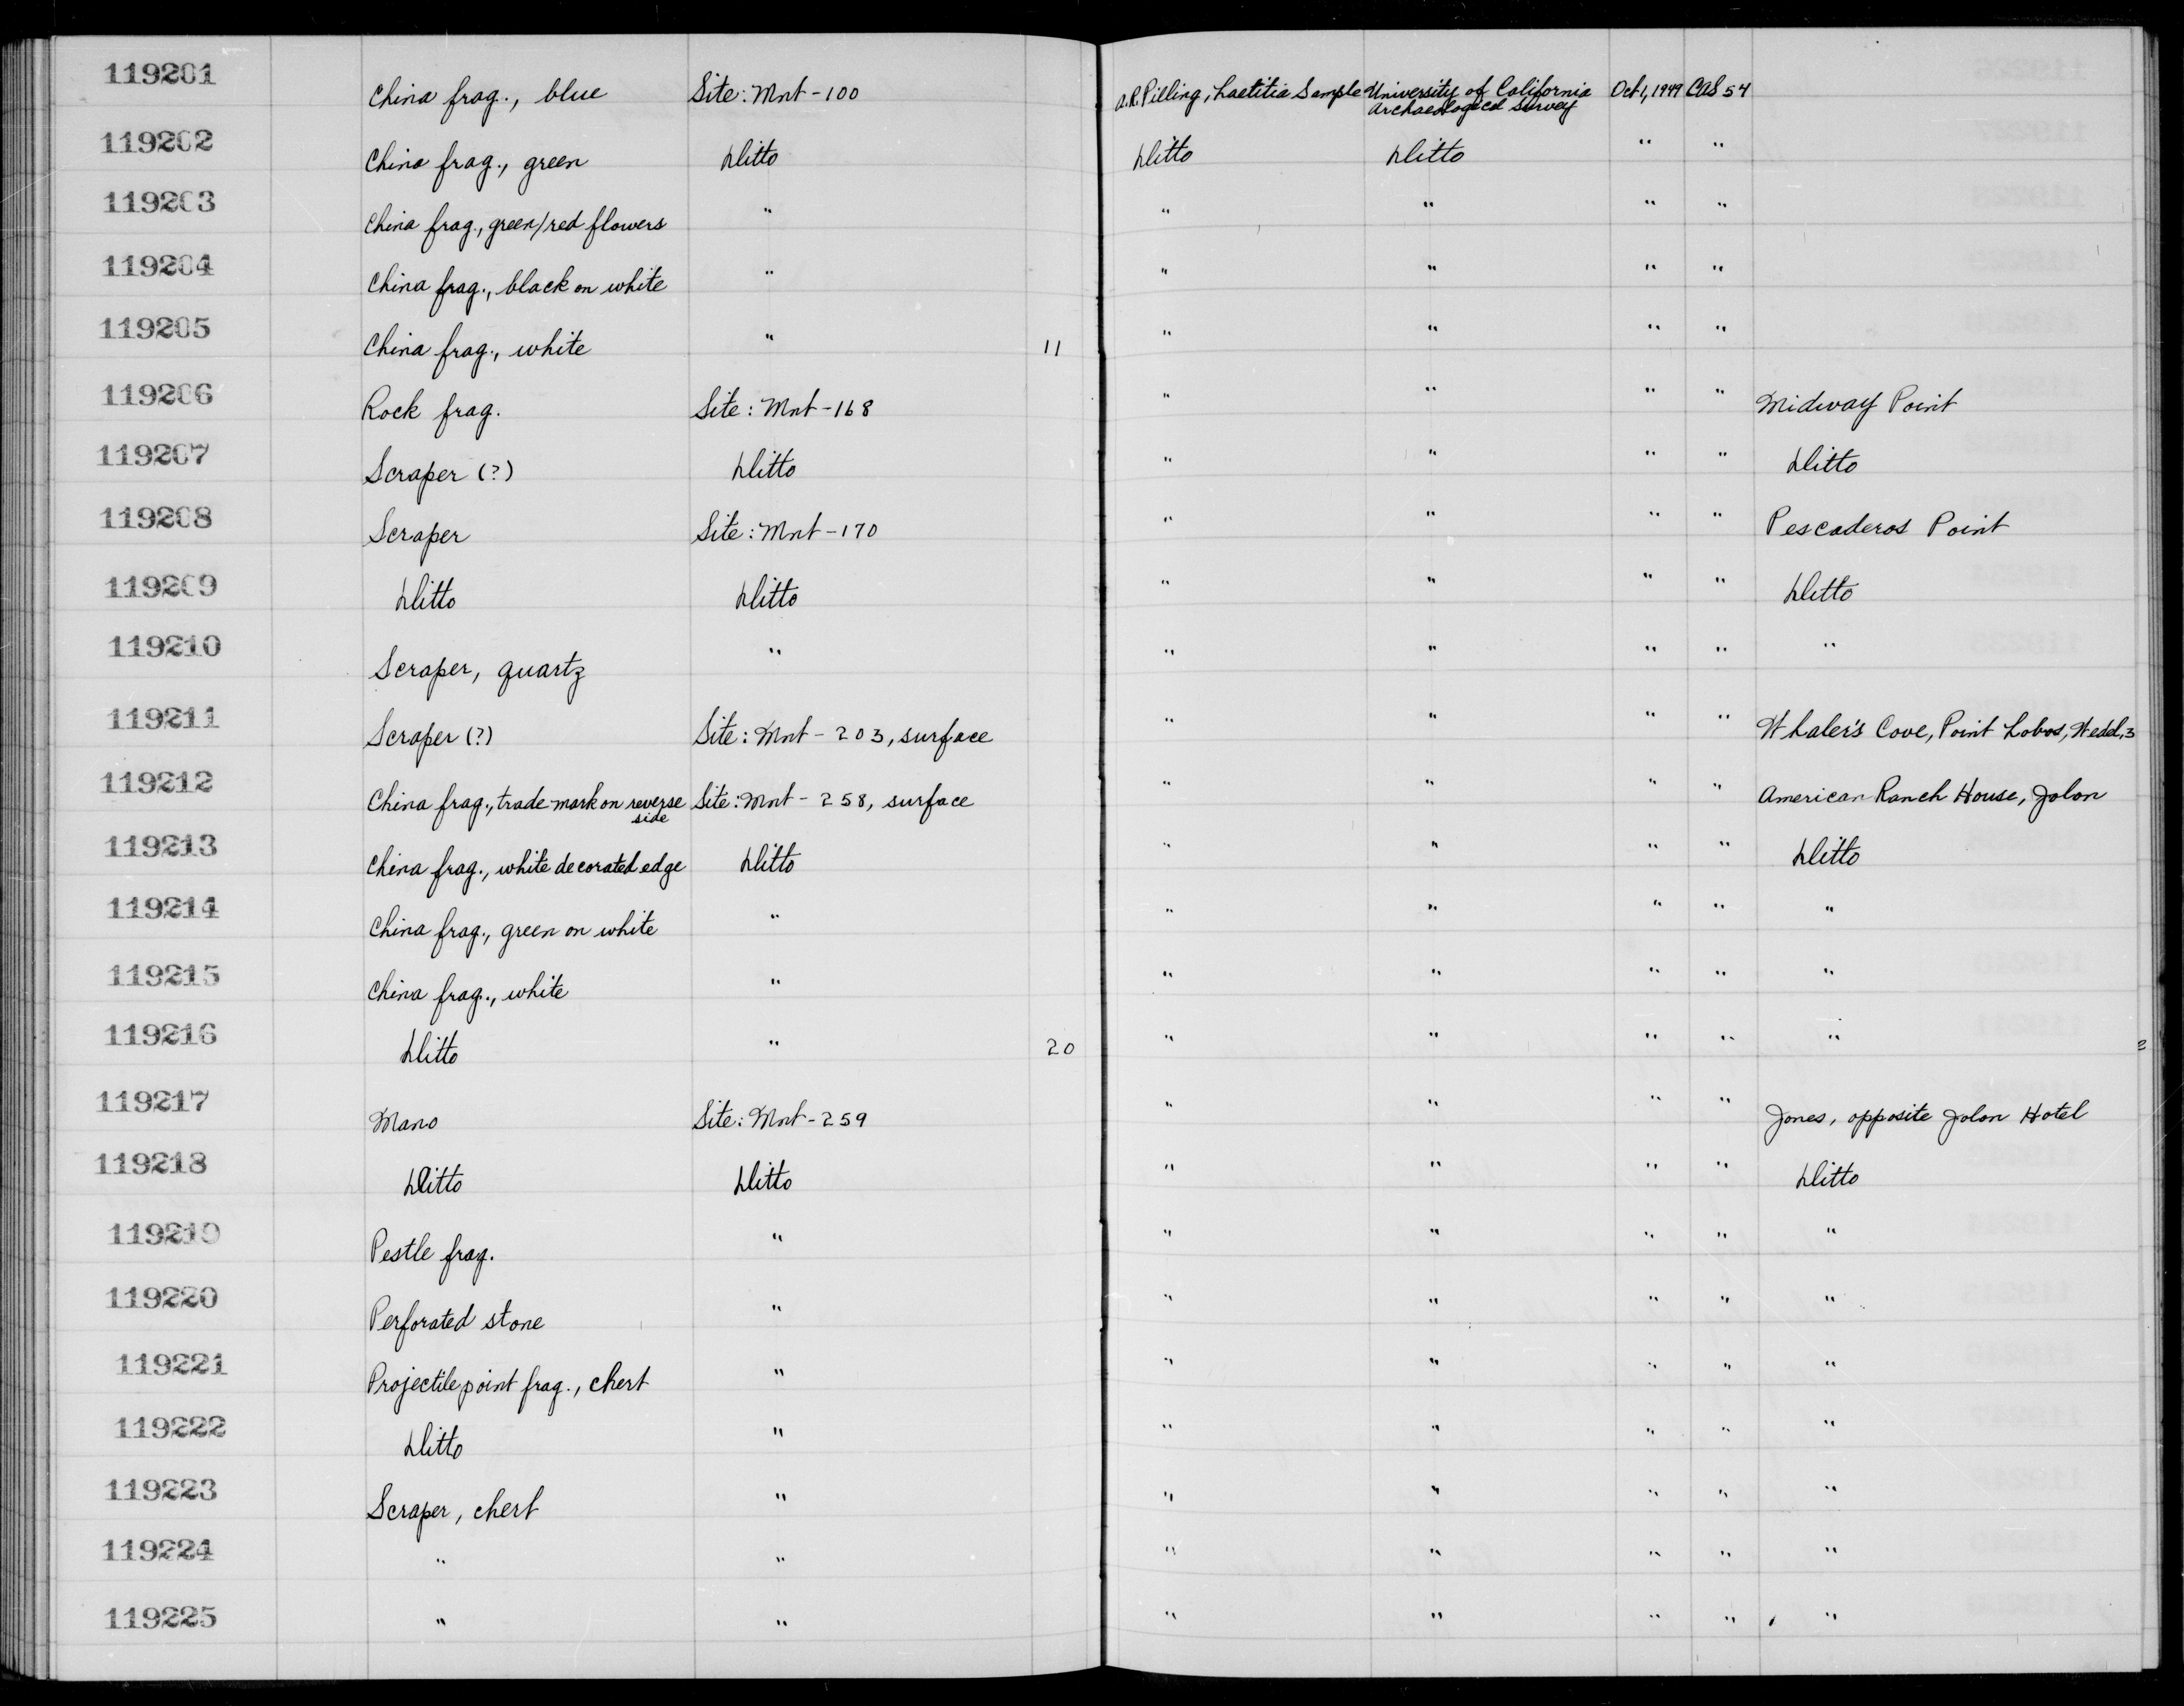 119201 China frag., blue Site: Mnt-100 A.R. Pilling, Laetitia Sample University of California Archaeological Survey Oct 1, 1949 CAS 54
119202 China frag., green Ditto Ditto Ditto " "
119203 China frag., green/red flowers " " " " "
119204 China frag., black on white " " " " "
119205 China frag., white " 11 " " " "
119206 Rock frag. Site: Mnt-168 " " " " Midway Point
119207 Scraper (?) Ditto " " " " Ditto
119208 Scraper Site: Mnt-170 " " " " Pescaderos Point
119209 Ditto Ditto " " " " Ditto
119210 Scraper, quartz " " " " " "
119211 Scraper (?) Site: Mnt-203, surface " " " " Whaler's Cove, Point Lobos, Wedel, 3
119212 China frag., trade mark on reverse side Site: Mnt-258, surface " " " " American Ranch House, Jolon
119213 China frag., white decorated edge Ditto " " " " Ditto
119214 China frag., green on white " " " " " "
119215 China frag., white " " " " " "
119216 Ditto " 20 " " " " "
119217 Mano Site: Mnt-259 " " " " Jones, opposite Jolon Hotel
119218 Ditto Ditto " " " " Ditto
119219 Pestle frag. " " " " " "
119220 Perforated stone " " " " " "
119221 Projectile point frag., chert " " " " " "
119222 Ditto " " " " " "
119223 Scraper, chert " " " " " "
119224 " " " " " " "
119225 " " " " " " "